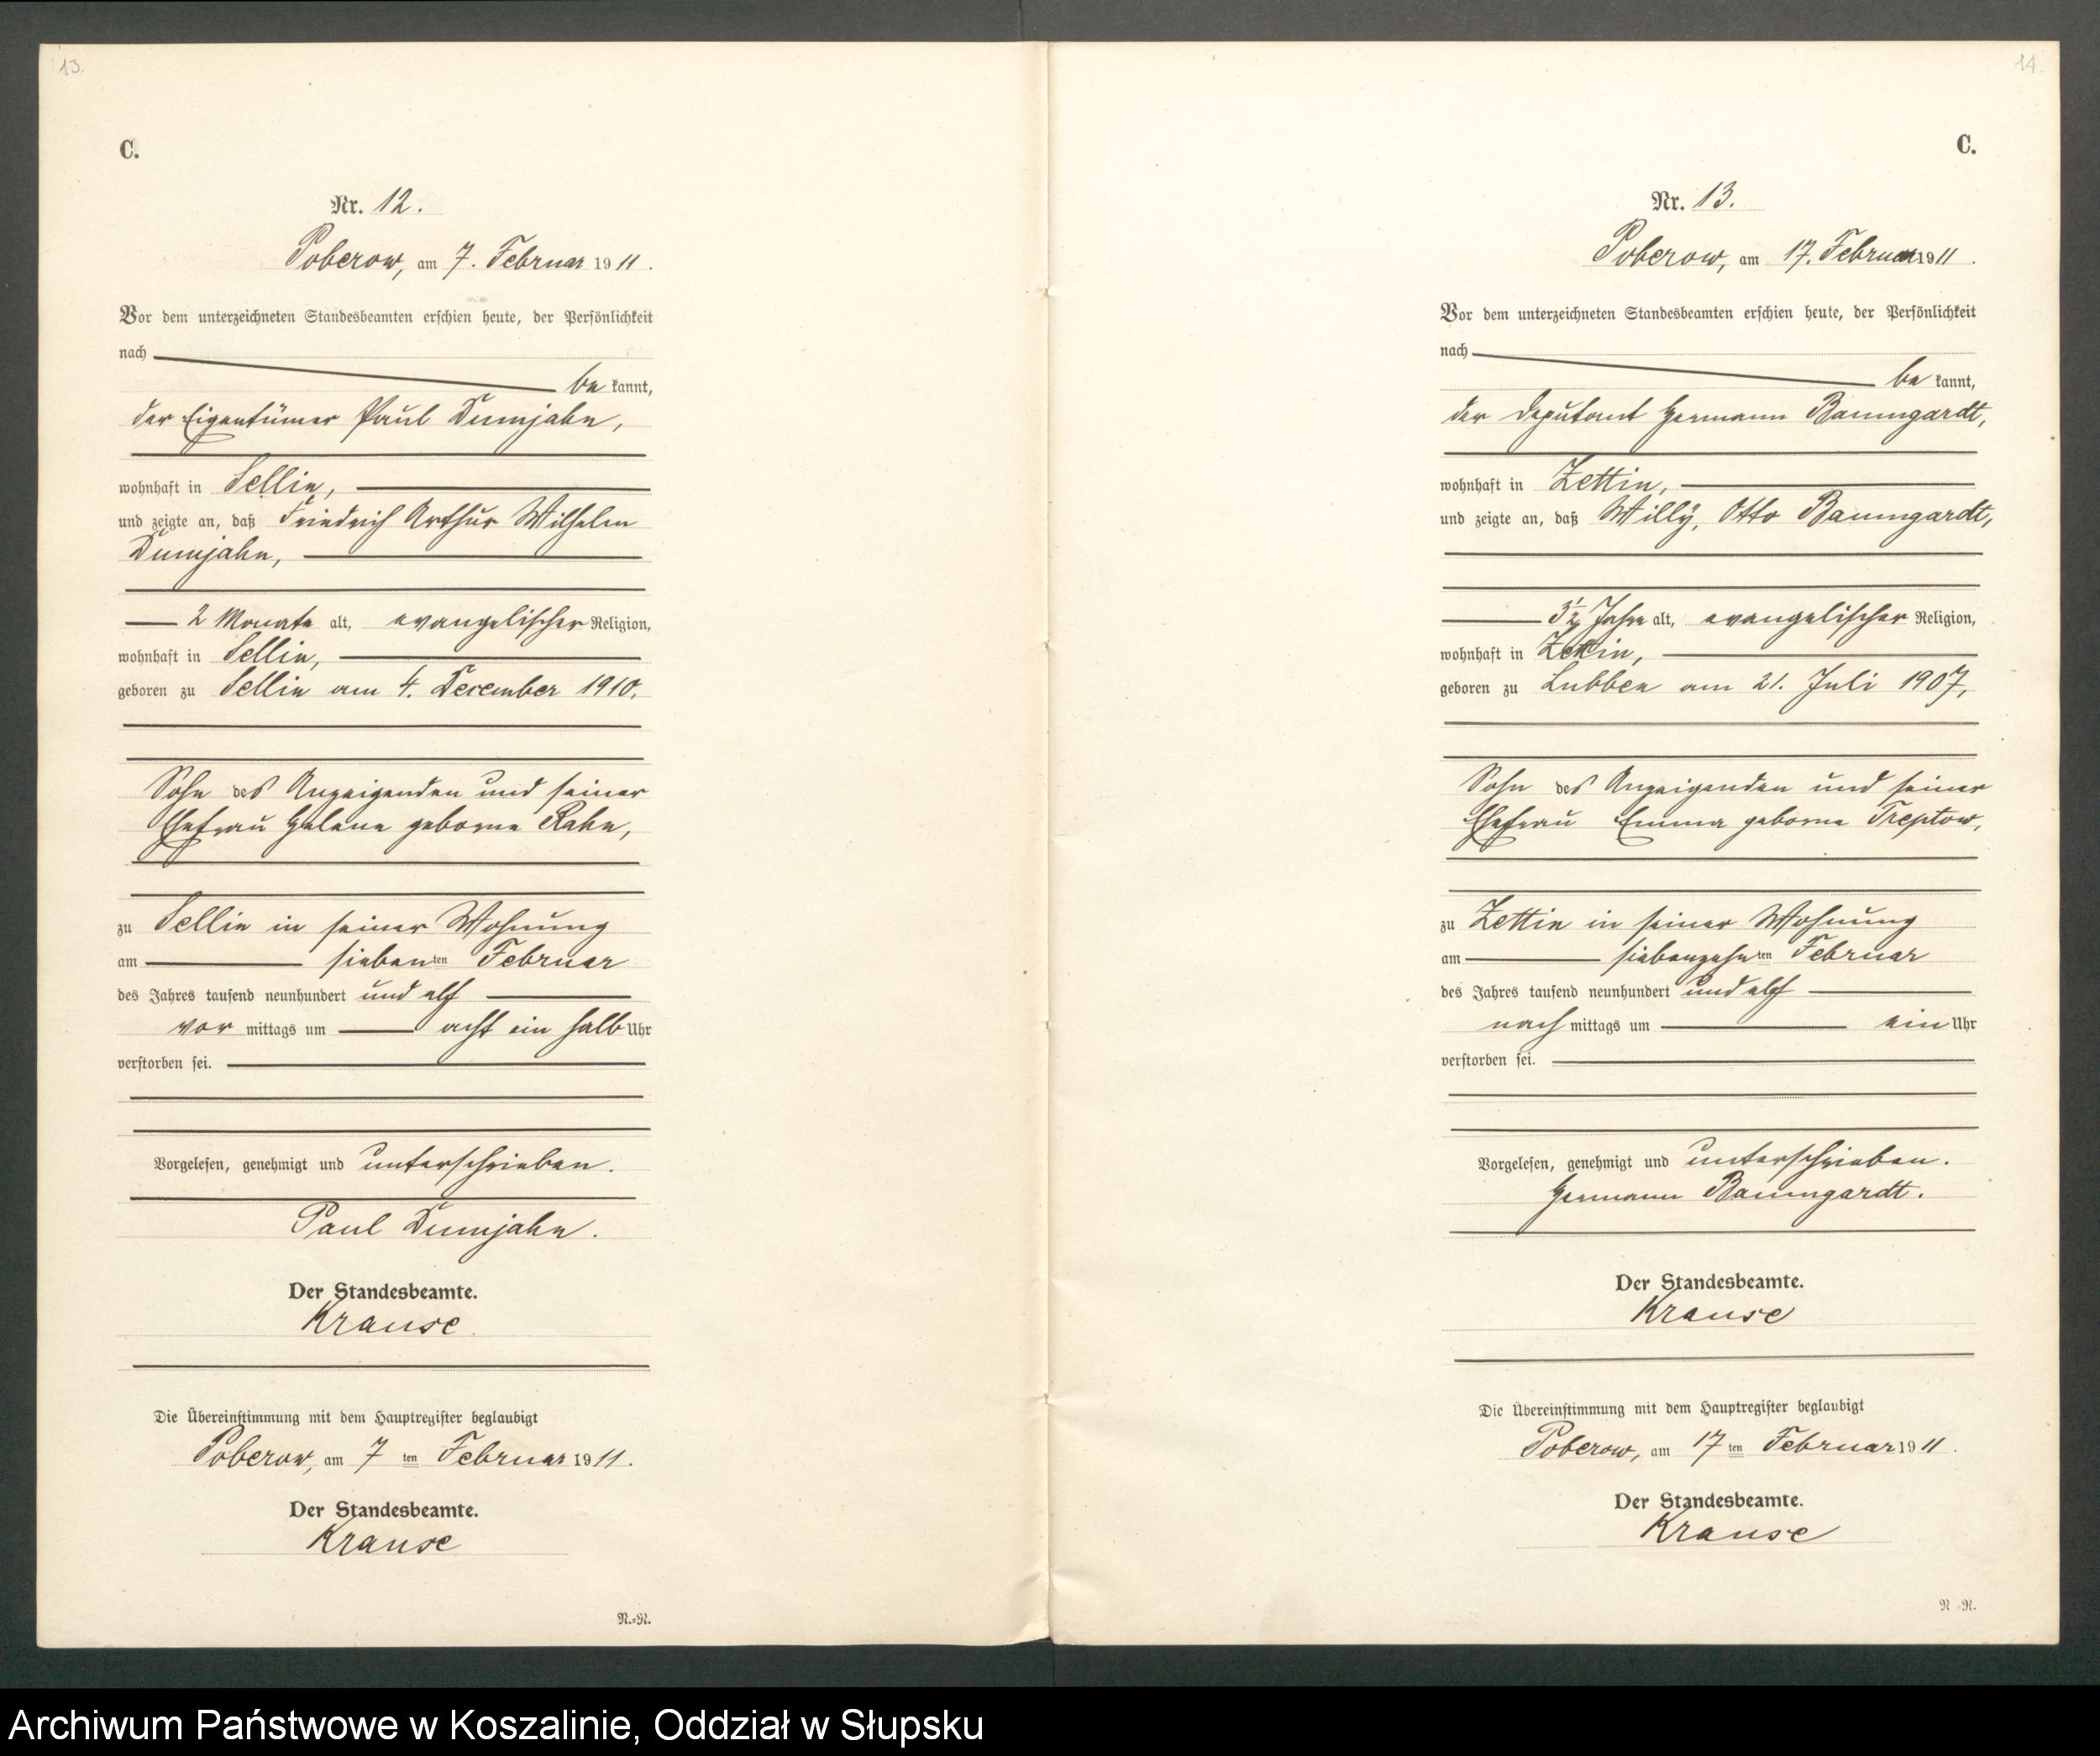 13.
C.
Nr. 12.
Poberow, am 7. Februar 1911.
Vor dem unterzeichneten Standesbeamten erschien heute, der Persönlichkeit
nach
be kannt,
der Eigentümer Paul Dumjahn,
wohnhaft in Sellin,
und zeigte an, daß Friedrich Arthur Wilhelm
Dumjahn,
2 Monate alt, evangelischer Religion,
wohnhaft in Sellin,
geboren zu Sellin am 4. Dezember 1910.
Sohn des Anzeigenden und seiner
Ehefrau Helene geborne Rahn,
zu Sellin in seiner Wohnung
am siebenten Februar
des Jahres tausend neunhundert und elf
vor mittags um acht ein halb Uhr
verstorben sei.
Vorgelesen, genehmigt und unterschrieben.
Paul Dumjahn.
Der Standesbeamte.
Krause.
Die Übereinstimmung mit dem Hauptregister beglaubigt
Poberow, am 7 ten Februar 1911.
Der Standesbeamte.
Krause
N.=R.
14.
C.
Nr. 13.
Poberow, am 17. Februar 1911.
Vor dem unterzeichneten Standesbeamten erschien heute, der Persönlichkeit
nach
be kannt,
der Deputant Hermann Baumgardt,
wohnhaft in Zettin,
und zeigte an, daß Willy, Otto Baumgardt,
3½ Jahre alt, evangelischer Religion,
wohnhaft in Zettin,
geboren zu Lubben am 21. Juli 1907,
Sohn des Anzeigenden und seiner
Ehefrau Emma geborne Treptow,
zu Zettin in seiner Wohnung
am siebenzehnten Februar
des Jahres tausend neunhundert und elf
nach mittags um ein Uhr
verstorben sei.
Vorgelesen, genehmigt und unterschrieben.
Hermann Baumgardt.
Der Standesbeamte.
Krause
Die Übereinstimmung mit dem Hauptregister beglaubigt
Poberow, am 17 ten Februar 1911.
Der Standesbeamte.
Krause
N.=R.
Archiwum Państwowe w Koszalinie, Oddział w Słupsku